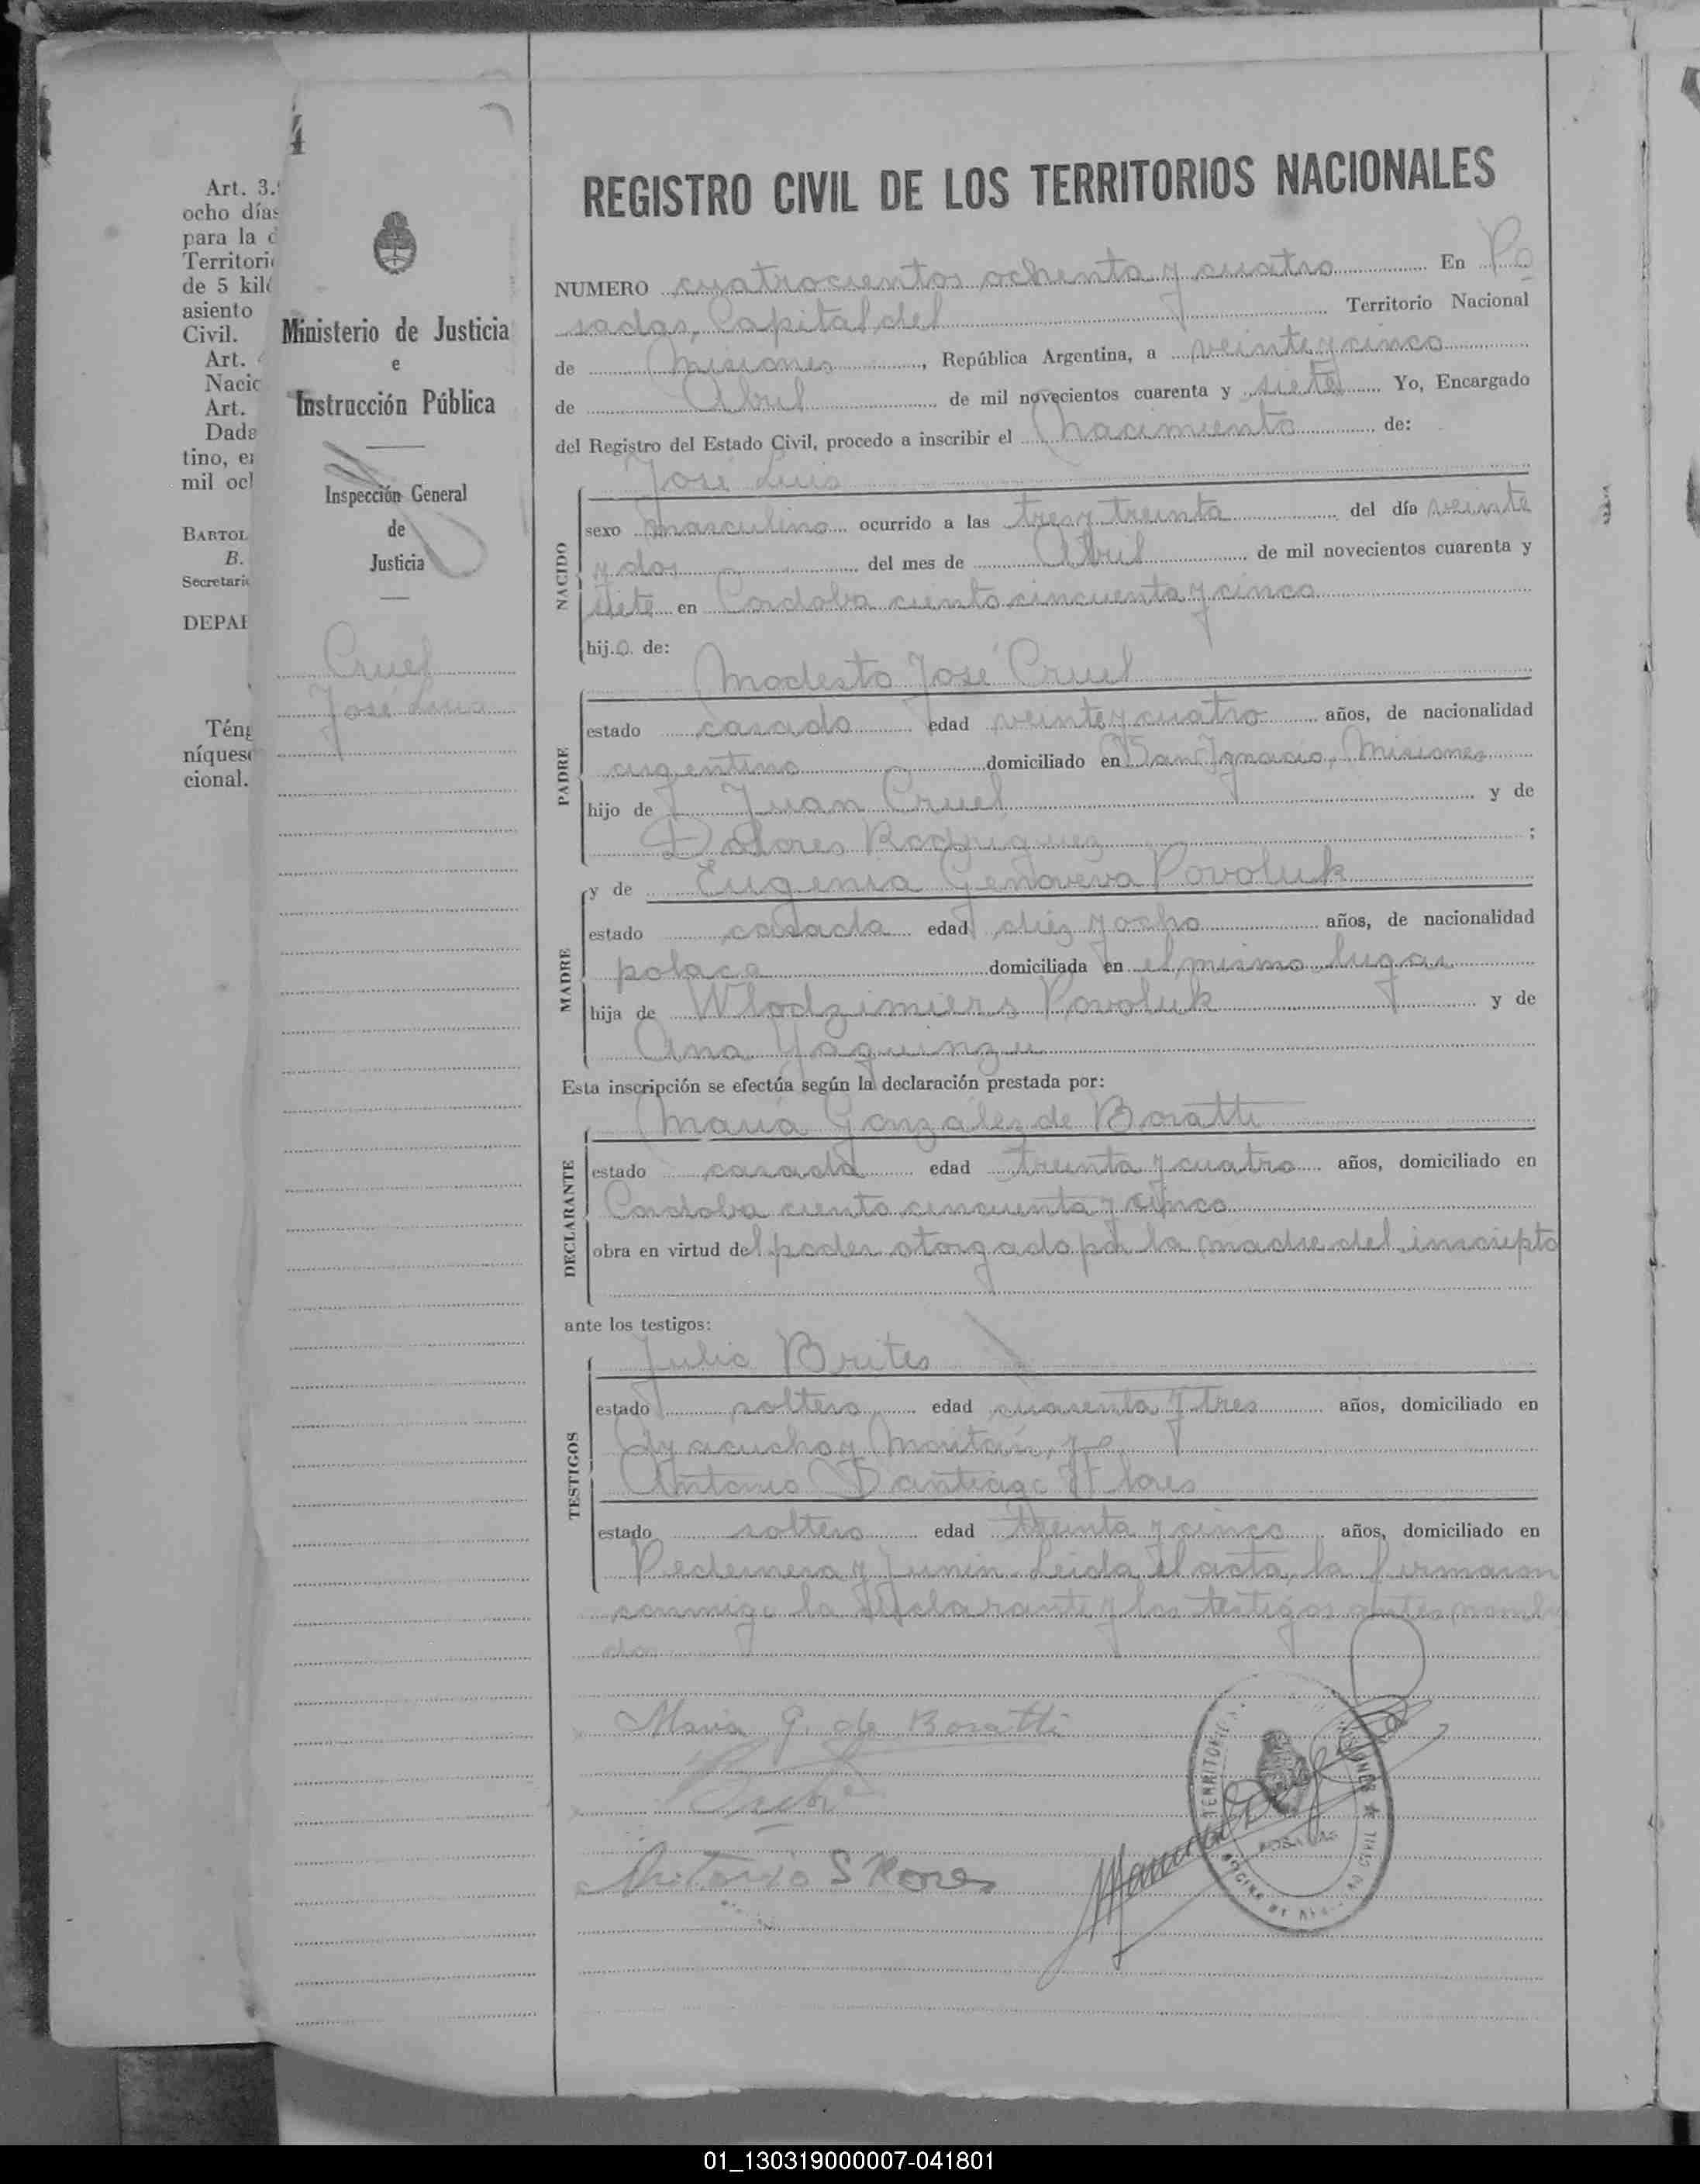 4
Art. 3.
ocho días
para la
Territori
de 5 kil
asiento
Civil.
Art.
Nacic
Art.
Dada
tino, e
mil oc
BARTOL
B.
Secretari
DEPA
Tén
níques
cional.
Ministerio de Justicia
e
Instrucción Pública
Inspección General
de
Justicia
Cruel
José Luis
REGISTRO CIVIL DE LOS TERRITORIOS NACIONALES
NUMERO cuatrocientos ochenta y cuatro En Po
sadas, Capital del Territorio Nacional
de Misiones, República Argentina, a veinte y cinco
de Abril de mil novecientos cuarenta y siete Yo, Encargado
del Registro del Estado Civil, procedo a inscribir el nacimiento de:
José Luis
NACIDO
sexo masculino ocurrido a las tres y treinta del día veinte
y dos del mes de Abril de mil novecientos cuarenta y
siete en Cordoba ciento cincuenta y cinco
hijo de:
Modesto José Cruel
PADRE
estado casado edad veinte y cuatro años, de nacionalidad
argentino domiciliado en San Ignacio, Misiones
hijo de Juan Cruel y de
Dolores Rodriguez ;
y de Eugenia Genoveva Povoluk
MADRE
estado casada edad diez y ocho años, de nacionalidad
polaca domiciliada en el mismo lugar
hija de Wlodzimiers Povoluk y de
Ana Yaguinzu
Esta inscripción se efectúa según la declaración prestada por:
María González de Boratti
DECLARANTE
estado casada edad treinta y cuatro años, domiciliado en
Cordoba ciento cincuenta y cinco
obra en virtud del poder otorgado por la madre del inscripto
ante los testigos:
Julio Brites
TESTIGOS
estado soltero edad cuarenta y tres años, domiciliado en
Ayacucho y
Antonio Santiago Flores
estado soltero edad treinta y cinco años, domiciliado en
Pedernera y Junin. Leida el acta, la firmaron
conmigo la declarante y los testigos antes nombra
dos
Maria G. de Boratti
Antonio S Flores
TERRITORIO
MISIONES
POSADAS
01_130319000007-041801